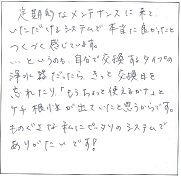 定期的なメンテナンスに来て
いただけるシステムで本当に良かったと
つくづく感じています。
…というのも、自分で交換するタイプの
浄水器だったら、きっと交換日を
忘れたり「もうちょっと使えるかナ」と
ケチ根性が出ていたと思うからです。
ものぐさな私にピッタリのシステムで
ありがたいです!